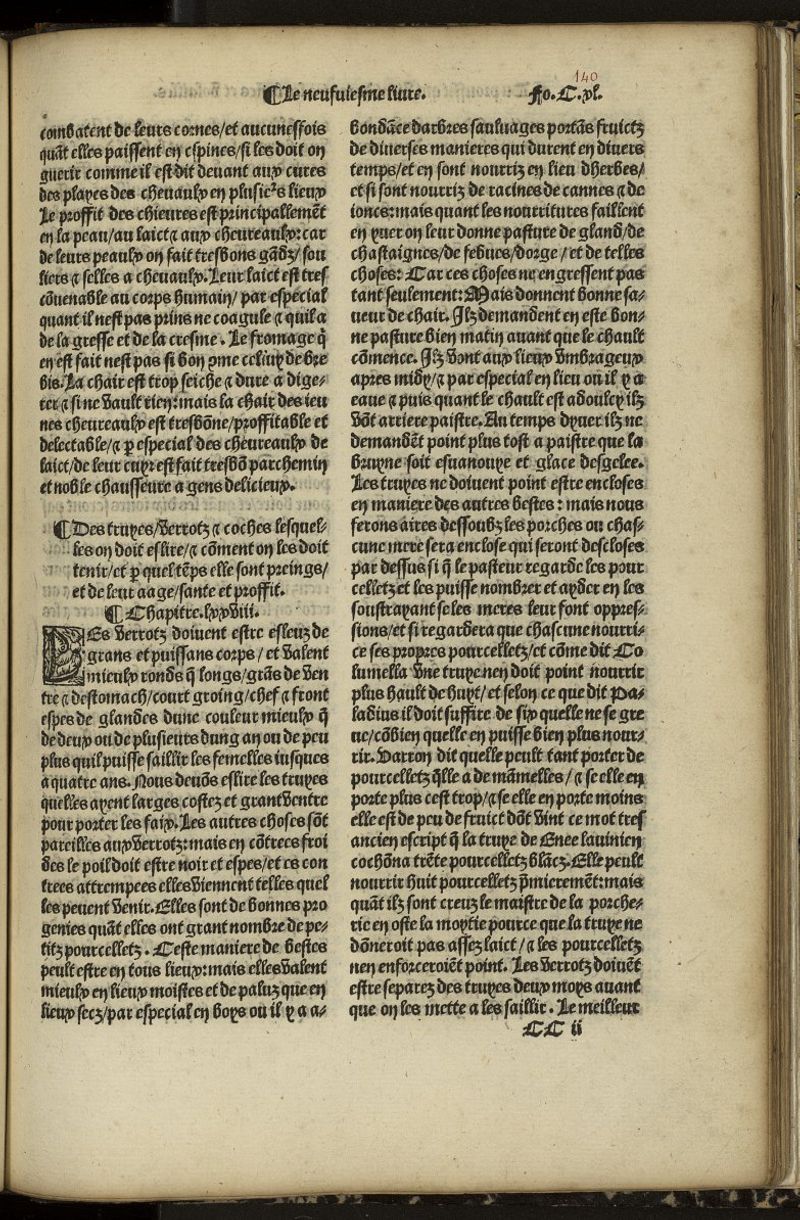 140
¶Le neufuiesme liure. Fo.C.xl.
combatent de leurs cornes/et aucunesfois
quāt elles paissent en espines/si les doit on
guerir comme il est dit deuant aux cures
des playes des cheuaulx en plusieꝰs lieux
Le proffit des chieures est principallemēt
en la peau/au laict ⁊ aux cheureaulx: car
de leurs peaulx on fait tresbons gādz/sou
liers ⁊ selles a cheuaulx. Leur laict est tres
cōuenable au corps humain/ par especial
quant il nest pas prins ne coagule ⁊ quil a
de la gresse et de la cresme . Le fromage q̄
en est fait nest pas si bon ꝯme celluy de bre
bis. La chair est trop seiche ⁊ dure a dige⸗
rer ⁊ si ne vault rien: mais la chair des ieu
nes cheureaulx est tresbōne/proffitable et
delectable/⁊ ꝑ especial des cheureaulx de
laict/de leur cuyr est fait tresbō parchemin
et noble chausseure a gens delicieux.
¶Des truyes/verrotz ⁊ coches lesquel⸗
les on doit eslire/⁊ cōment on les doit
tenir/et ꝑ quel tēps elle sont preings/
et de leur aage/sante et proffit.
¶ Chapitre.lxxviii.
LEs verrotz doiuent estre esleuz de
grans et puissans corps / et valent
mieulx ronds q̄ longs/grās de ven
tre ⁊ destomach/court groing/chef ⁊ front
espes de glandes dune couleur mieulx q̄
de deux ou de plusieurs dung an ou de peu
plus quil puisse saillir les femelles iusques
a quatre ans. Nous deuōs eslire les truyes
quelles ayent larges costez et grant ventre
pour porter les faix. Les autres choses sōt
pareilles aux verrotz: mais en cōtrees froi
des le poil doit estre noir et espes/et es con
trees attrempees elles viennent telles quel
les peuent venir. Elles sont de bonnes pro
genies quāt elles ont grant nombre de pe⸗
titz pourcelletz . Ceste maniere de bestes
peult estre en tous lieux: mais elles valent
mieulx en lieux moistes et de paluz que en
lieux secz/par especial en boys ou il y a a⸗
bondāce darbres sauluages portās fruictz
de diuerses manieres qui durent en diuers
temps/et en sont nourriz en lieu dherbes/
et si sont nourriz de racines de cannes ⁊ de
ioncs: mais quant les nourritures faillent
en yuer on leur donne pasture de gland/de
chastaignes/de febues/dorge / et de telles
choses: Car ces choses ne engressent pas
tant seulement: Mais donnent bonne sa⸗
ueur de chair. Ilz demandent en este bon⸗
ne pasture bien matin auant que le chault
cōmence. Ilz vont aux lieux vmbrageux
apres midy/⁊ par especial en lieu ou il y a
eaue ⁊ puis quant le chault est adoulcy ilz
vōt arriere paistre. Au temps dyuer ilz ne
demandēt point plus tost a paistre que la
bruyne soit esuanouye et glace desgelee.
Les truyes ne doiuent point estre encloses
en maniere des autres bestes : mais nous
ferons aires dessoubz les porches ou chas⸗
cune mere sera enclose qui seront descloses
par dessus si q̄ le pasteur regarde les pour
celletz et les puisse nombrer et ayder en les
soustrayant se les meres leur font oppres⸗
sions/et si regardera que chascune nourri⸗
ce ses propres pourcelletz/et cōme dit Co
lumella vne truye nen doit point nourrir
plus hault de huyt/et selon ce que dit Pa⸗
ladius il doit suffire de six quelle ne se gre
ue/cōbien quelle en puisse bien plus nour⸗
rir. Varron dit quelle peult tant porter de
pourcelletz q̄lle a de māmelles/⁊ se elle en
porte plus cest trop/⁊ se elle en porte moins
elle est de peu de fruict dōt vint ce mot tres
ancien escript q̄ la truye de Enee lauinien
cochōna trēte pourcelletz blācz. Elle peult
nourrir huit pourcelletz p̄mieremēt: mais
quāt ilz sont creuz le maistre de la porche⸗
rie en oste la moytie pource que la truye ne
dōneroit pas assez laict / ⁊ les pourcelletz
nen enforceroiēt point. Les verrotz doiuēt
estre separez des truyes deux moys auant
que on les mette a les saillir . Le meilleur
CC ii